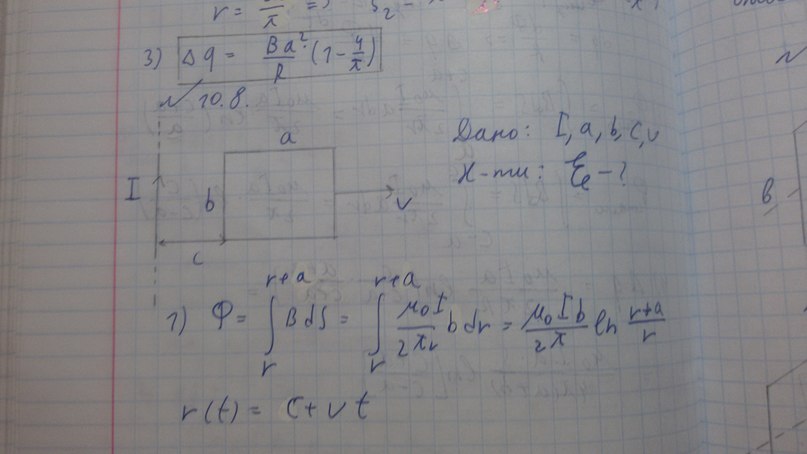 3) Δq = Ba²/R (1 - 4/π)
№ 10.8.
a
I
b
v
c
Дано: I, a, b, c, v
Н-ти: ℰᵢ - ?
1) Φ = ∫ᵣʳ⁺ᵃ B dS = ∫ᵣʳ⁺ᵃ μ₀I/2πr b dr = μ₀Ib/2π ln r+a/r
r(t) = c + vt
в